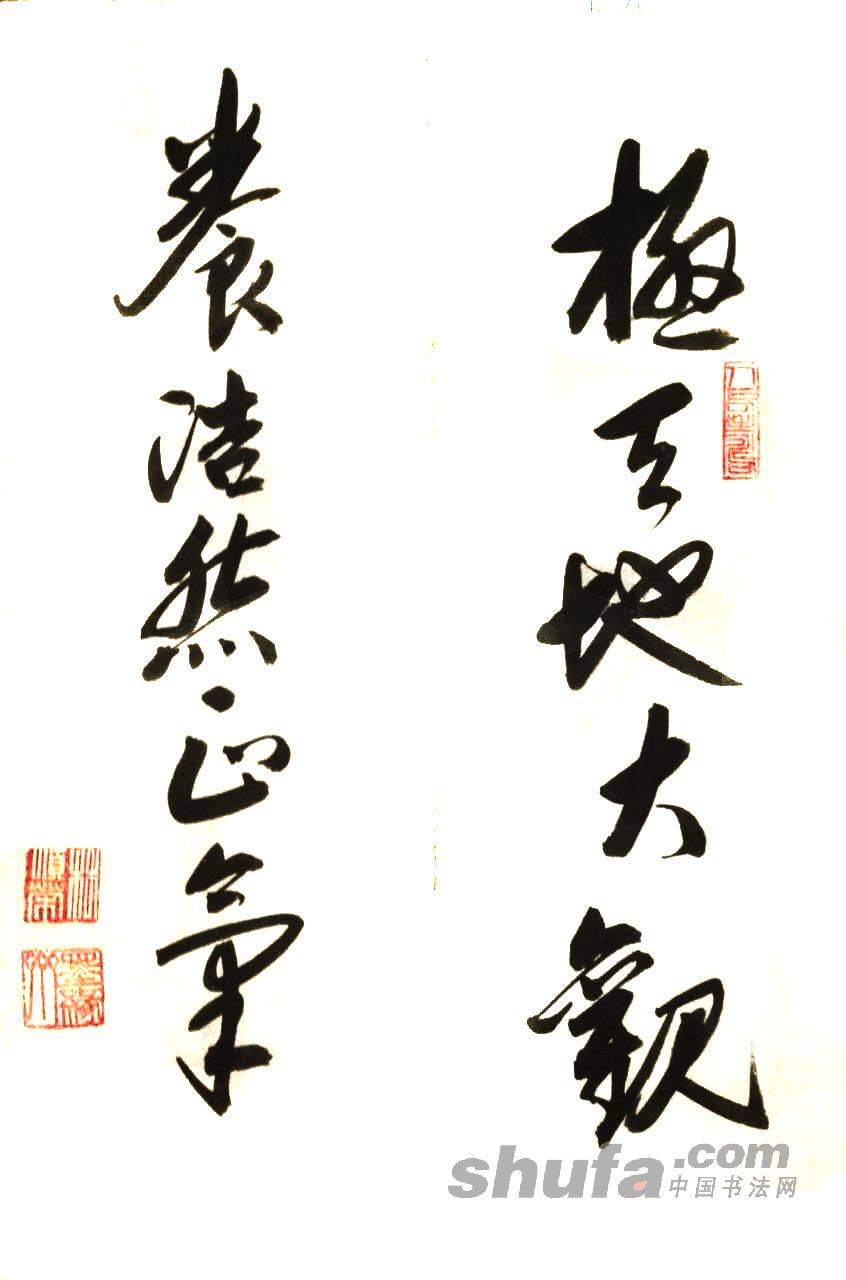 極天地大觀
養浩然正氣
shufa.com
中国书法网